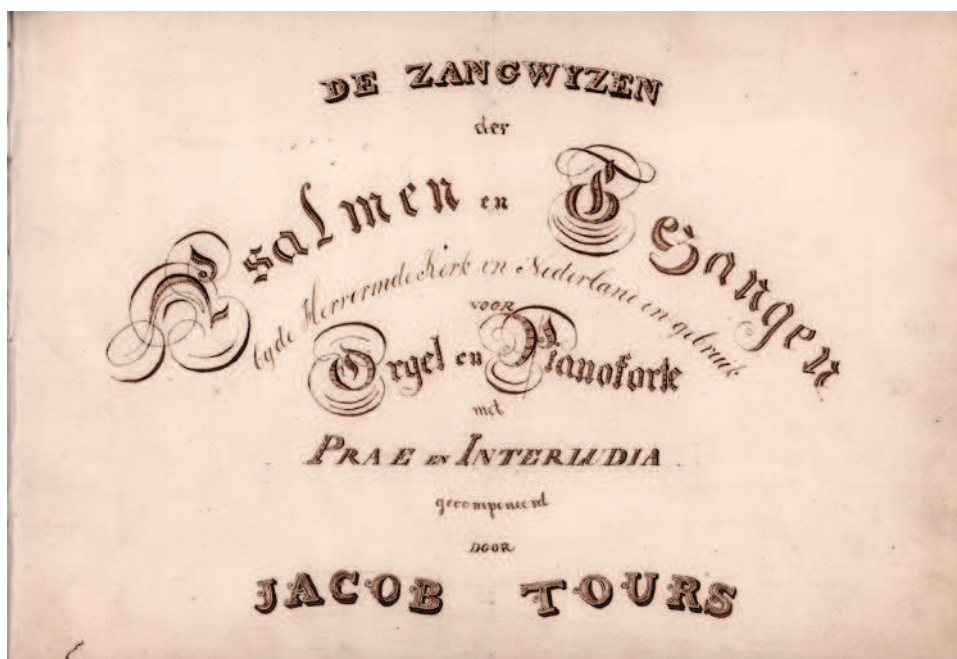 DE ZANGWYZEN
der
Psalmen en Gesangen
by de Hervormde Kerk in Nederland in gebruik
VOOR
Orgel en Pianoforte
met
PRAE EN INTERLUDIA
gecomponeerd
DOOR
JACOB TOURS